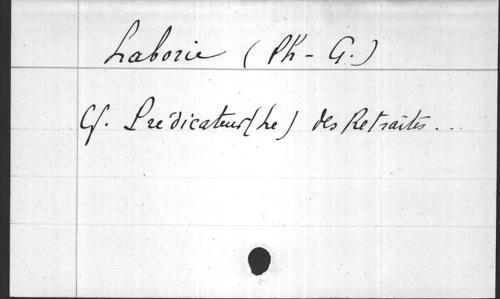 Laborie (Ph - G.)
Cf. Prédicateur (Le) des Retraites...